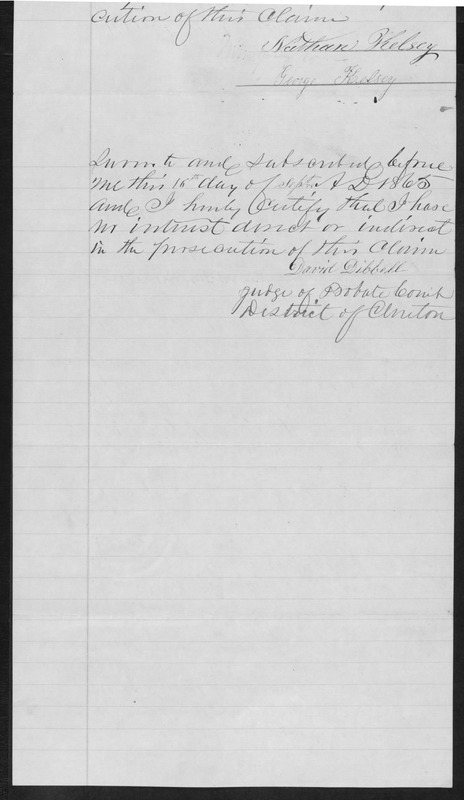 cution of this Claim
Nathan Kelsey
George Kelsey
Sworn to and subscribed before
me this 15th day of Sept. A D 1865
and I hereby Certify that I have
no intrust direct or indirect
in the prosecution of this Claim
David Dibbell
Judge of Probate Court
District of Clinton